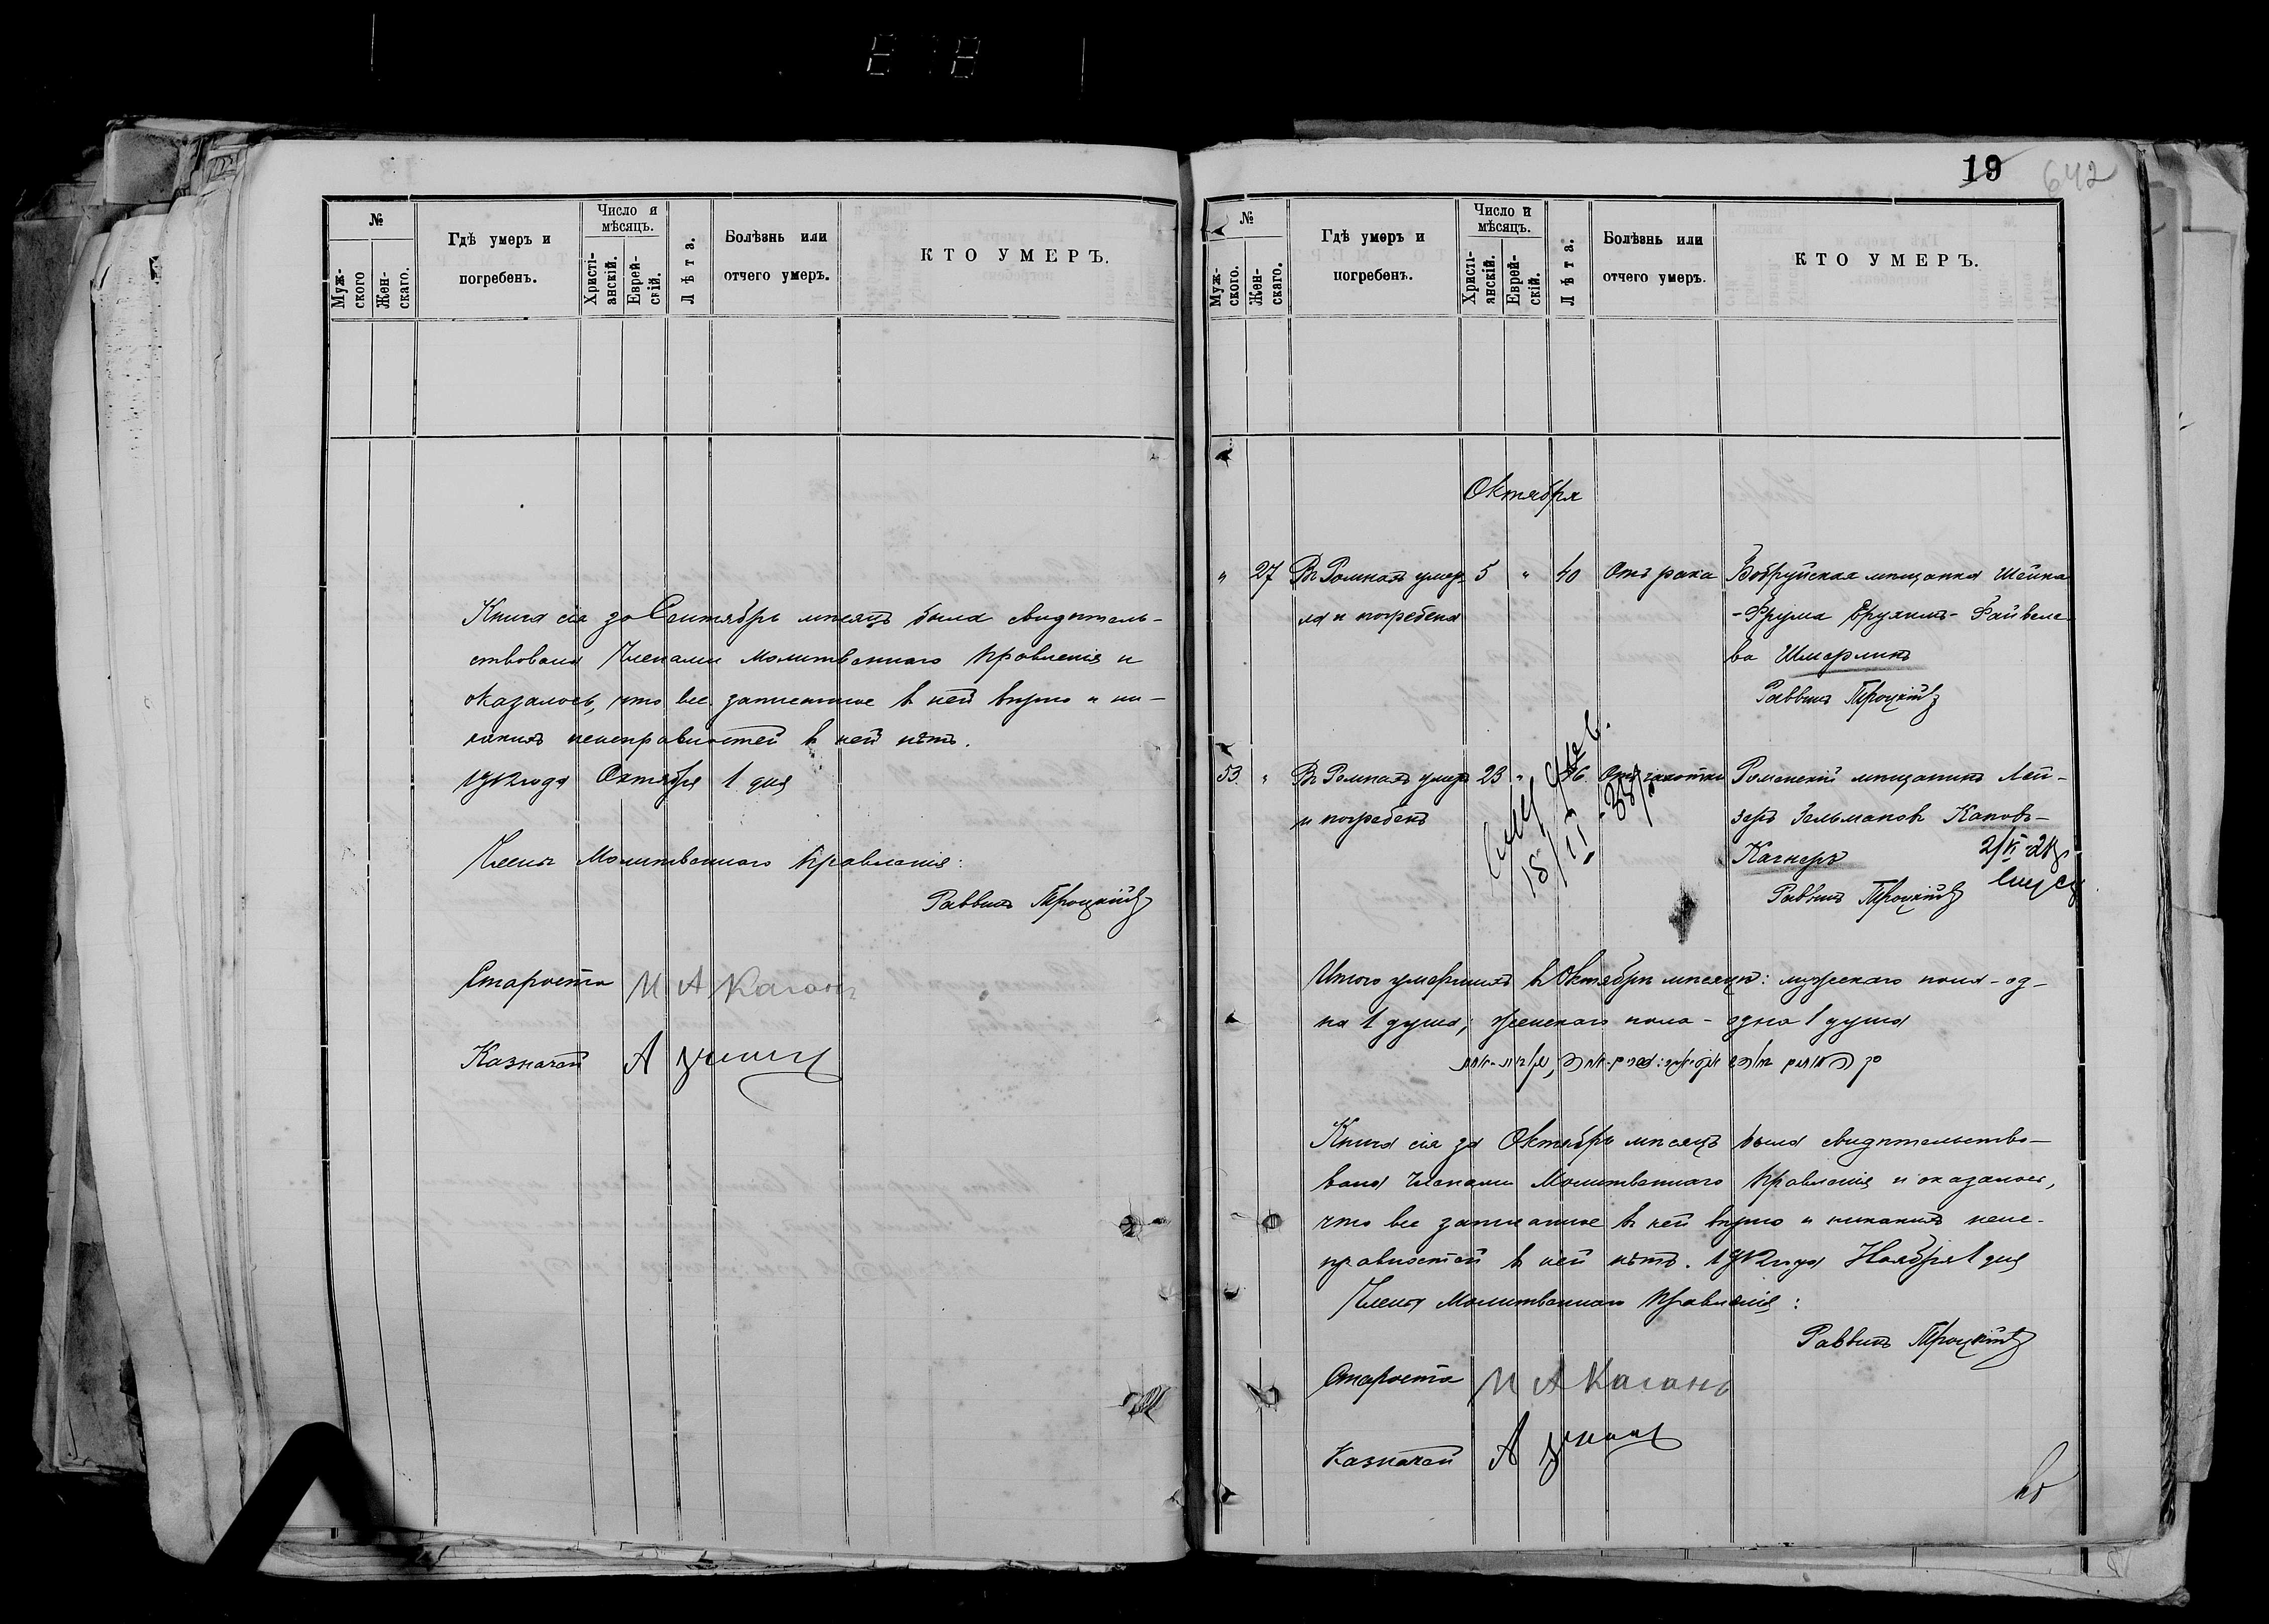 19
642
№
Муж-
ского
Жен-
скаго.
Гдѣ умеръ и
погребенъ.
Число и
мѣсяцъ.
Христі-
анскій.
Еврей-
скій.
Лѣта.
Болѣзнь или
отчего умеръ.
КТО УМЕРЪ.
Книга сія за Сентябрь мѣсяцъ была свидѣтель-
ствована Членами Молитвеннаго Правленія и
оказалось, что все записанное в ней вѣрно и ни-
какихъ неисправностей в ней нѣтъ.
1912 года Октября 1 дня
Члены Молитвеннаго Правленія:
Раввинъ Троцкій
Староста И А Каганъ
Казначей А
№
Муж-
ского.
Жен-
скаго.
Гдѣ умеръ и
погребенъ.
Число и
мѣсяцъ.
Христі-
анскій.
Еврей-
скій.
Лѣта.
Болѣзнь или
отчего умеръ.
КТО УМЕРЪ.
Октября
" 27 Въ Ромнахъ умер- 5 " 40 Отъ рака Бобруйская мѣщанка Шейна
ла и погребена -Фрума Файвеле-
ва Шмерлинъ
Раввинъ Троцкій
53 " Въ Ромнахъ умеръ 23 " Отъ чахотки Роменскій мѣщанинъ Лей-
и погребенъ зеръ Зельмановъ
Раввинъ Троцкій
Итого умершихъ в Октябрѣ мѣсяцѣ: мужескаго пола - од-
на 1 душа; женскаго пола - одна 1 душа
Книга сія за Октябрь мѣсяцъ была свидѣтельство-
вана Членами Молитвеннаго Правленія и оказалось,
что все записанное в ней вѣрно и никакихъ неис-
правностей в ней нѣтъ. 1912 года Ноября 1 дня
Члены Молитвеннаго Правленія:
Раввинъ Троцкій
Староста И А Каганъ
Казначей А